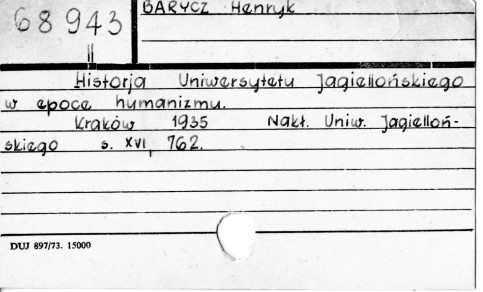 BARYCZ Henryk
68943
II
Historja Uniwersytetu Jagiellońskiego
w epoce humanizmu.
Kraków 1935 Nakł. Uniw. Jagielloń-
skiego s. XVI, 762.
DUJ 897/73. 15000